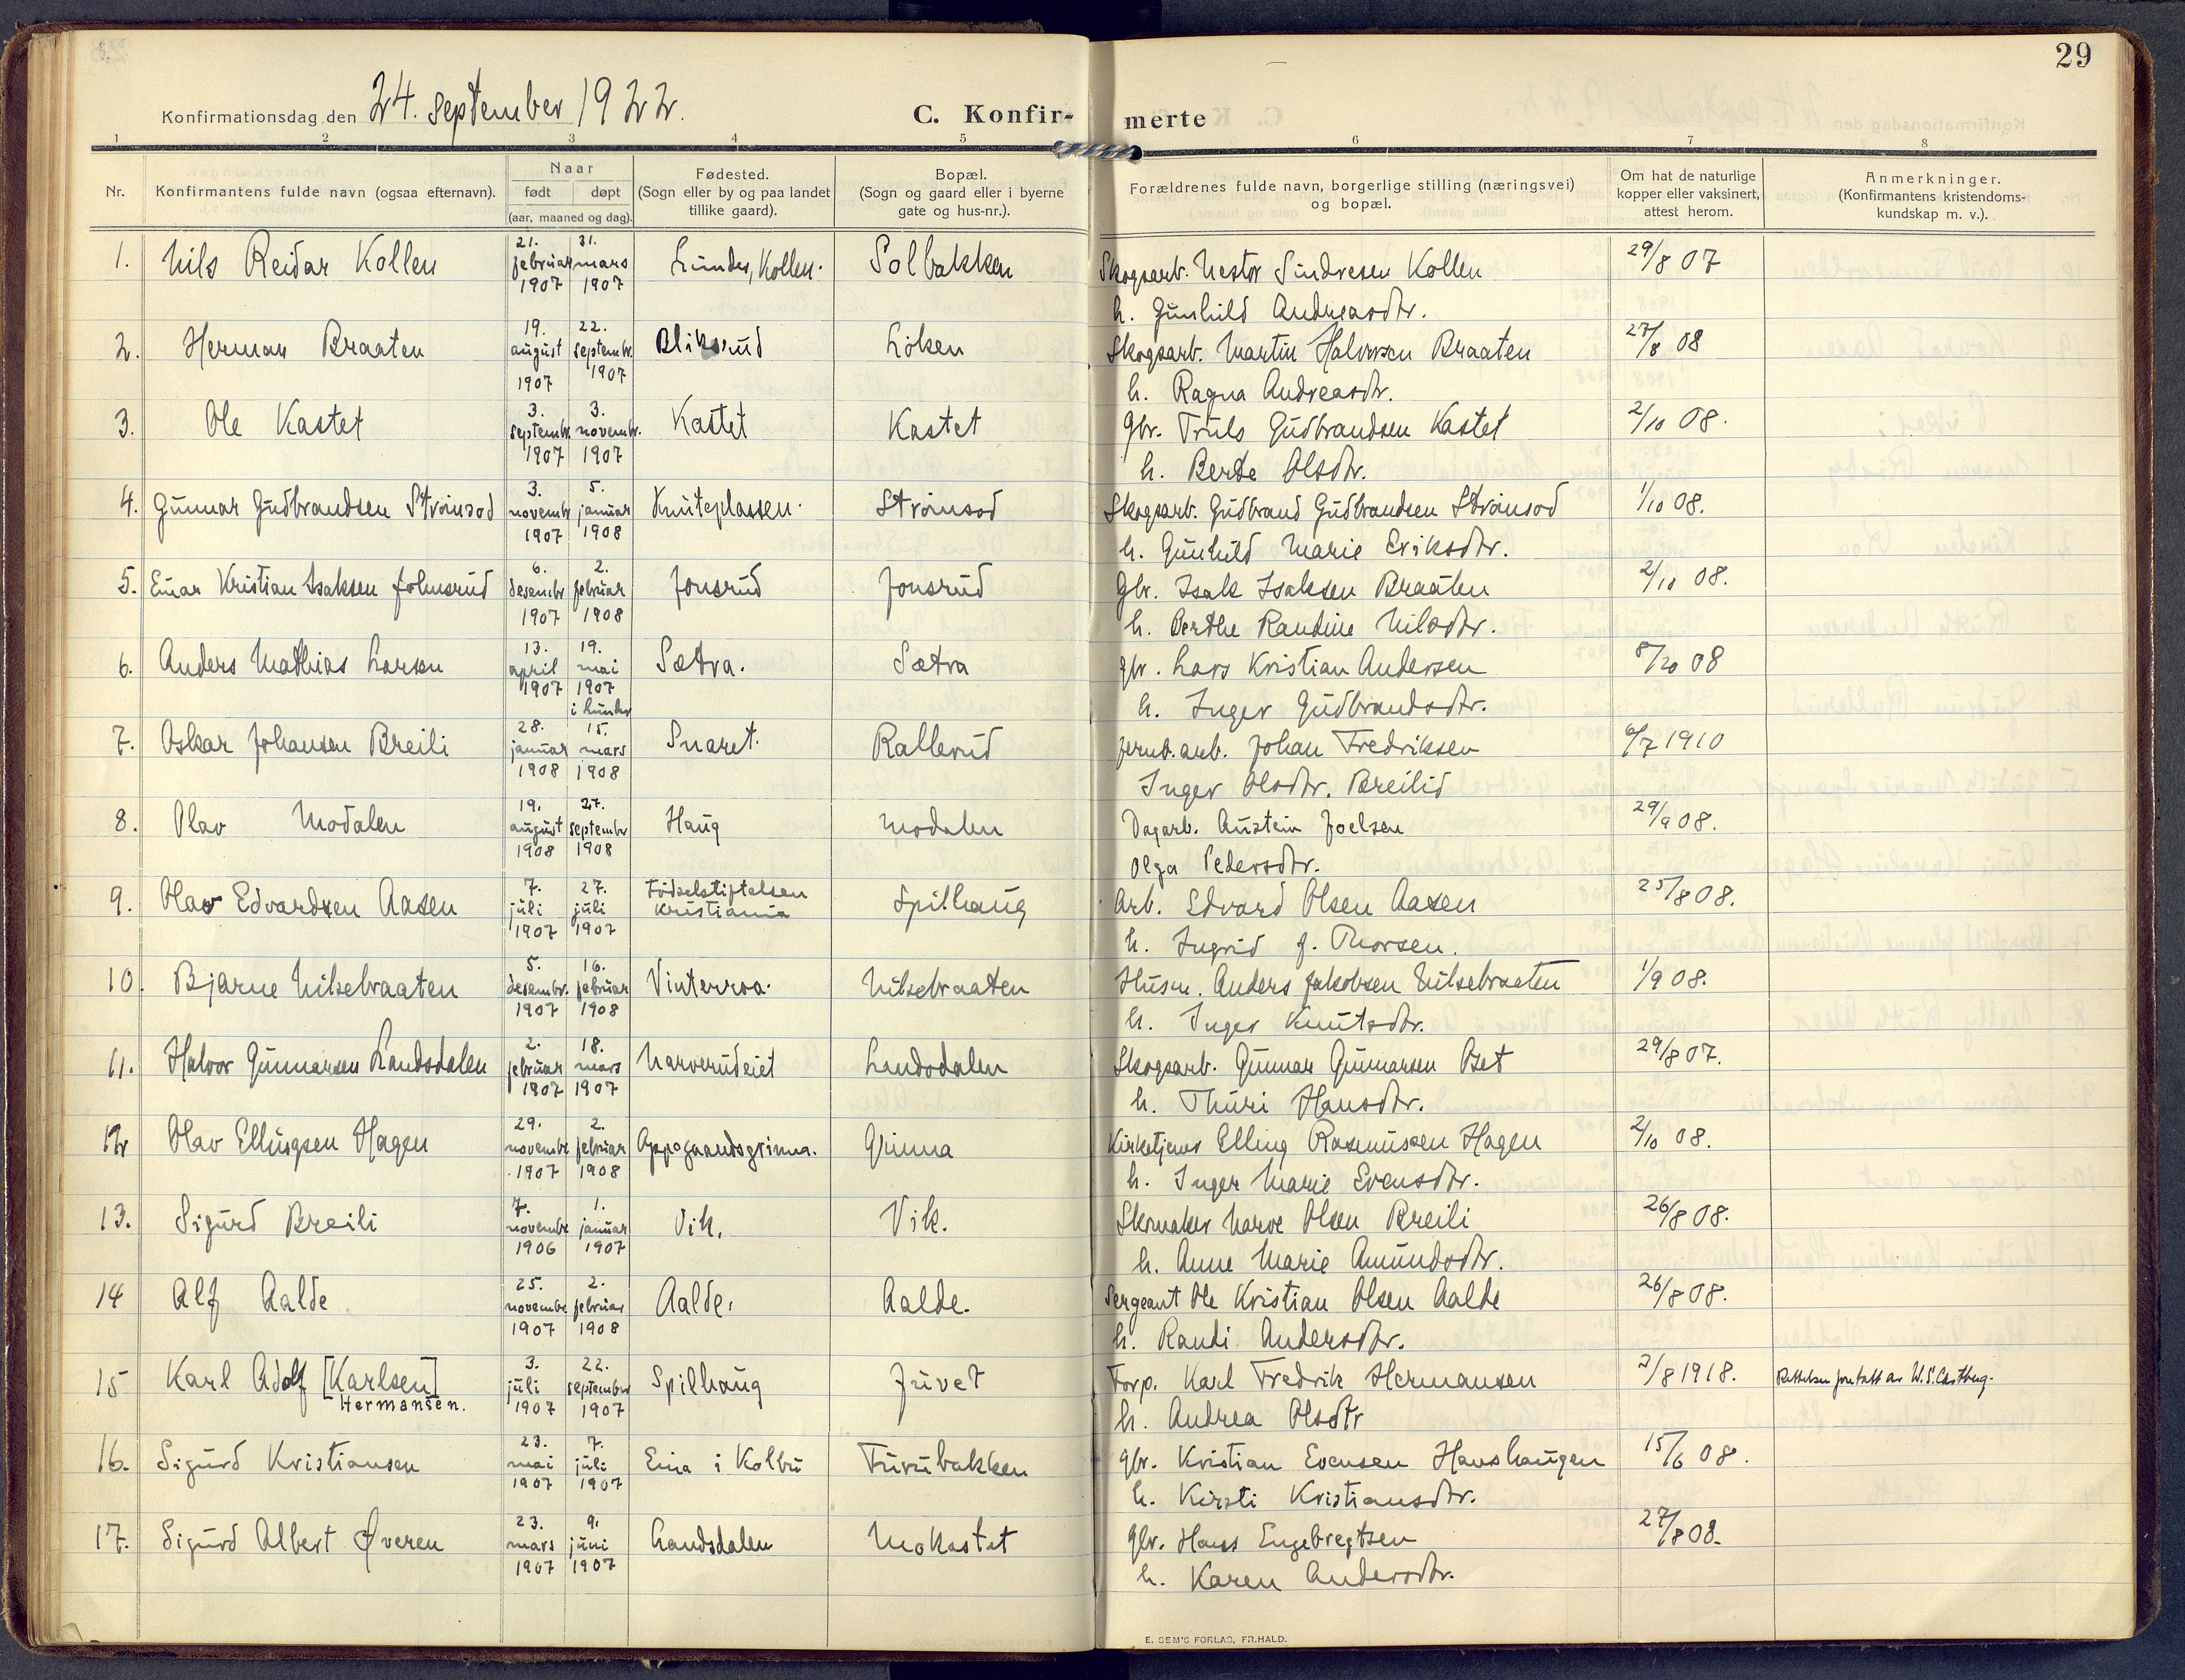 29
Konfirmationsdag den 24. september 1922.
C. Konfirmerte
1 2 3 4 5 6 7 8
Nr. Konfirmantens fulde navn (ogsaa efternavn). Naar født døpt (aar, maaned og dag). Fødested. (Sogn eller by og paa landet tillike gaard). Bopæl. (Sogn og gaard eller i byerne gate og hus-nr.). Forældrenes fulde navn, borgerlige stilling (næringsvei) og bopæl. Om hat de naturlige kopper eller vaksinert, attest herom. Anmerkninger. (Konfirmantens kristendomskundskap m. v.).
1. Nils Reidar Kollen 21. februar 1907 31. mars 1907 Lunder, Kollen. Solbakken Skogsarb. Nestor Sindresen Kollen 29/8 07
h. Gunhild Andreasdtr.
2. Herman Braaten 19. august 1907 22. septembr. 1907 Bliksrud Løken Skogsarb. Martin Halvorsen Braaten 27/8 08
h. Ragna Andreasdtr.
3. Ole Kastet 3. septembr. 1907 3. novembr. 1907 Kastet Kastet gbr. Truls Gudbrandsen Kastet 2/10 08.
h. Berte Olsdtr.
4. Gunnar Gudbrandsen Strømsod 3. novembr 1907 5. januar 1908 Knuteplassen. Strømsod Skogsarb. Gudbrand Gudbrandsen Strømsod 1/10 08.
h. Gunhild Marie Eriksdtr.
5. Einar Kristian Isaksen Johnsrud 6. desembr 1907 2. februar 1908 Jonsrud Jonsrud Gbr. Isak Isaksen Braaten 2/10 08.
h. Berthe Randine Nilsdtr.
6. Anders Mathias Larsen 13. april 1907 19. mai 1907 i Lunder Sætra. Sætra gbr. Lars Kristian Andersen 8/20 08
h. Inger Gudbrandsdtr.
7. Oskar Johansen Breili 28. januar 1908 15. mars 1908 Snaret. Rallerud jernb. arb. Johan Fredriksen 6/7 1910
Inger Olsdtr. Breilid
8. Olav Modalen 19. august 1908 27. septembr 1908 Haug Modalen Dagarb. Austein Joelsen 29/9 08.
Olga Pedersdtr.
9. Olav Edvardsen Aasen 7. juli 1907 27. juli 1907 Fødselstiftelsen Kristiania Spilhaug Arb. Edvard Olsen Aasen 25/8 08.
h. Ingrid f. Thorsen.
10. Bjarne Nilsebraaten 5. desembr. 1907 16. februar 1908 Vinterroa. Nilsebraaten Husm. Anders Jakobsen Nilsebraaten 1/9 08.
h. Inger Knutsdtr.
11. Halvor Gunnarsen Landsdalen 2. februar 1907 18. mars 1907 Narverudeiet Landsdalen Skogsarb. Gunnar Gunnarsen Oset 29/8 07.
h. Thuri Hansdtr.
12 Olav Ellingsen Hagen 29. novembr 1907 2. februar 1908 Oppegaardsgrinna. Grinna Kirketjener Elling Rasmussen Hagen 2/10 08.
h. Inger Marie Evensdtr.
13. Sigurd Breili 7. novembr 1906 1. januar 1907 Vik. Vik. Skomaker Narve Olsen Breili 26/8 08.
h. Anne Marie Amundsdtr.
14 Alf Aalde 25. novembr 1907 2. februar 1908 Aalde. Aalde. Sergeant Ole Kristian Olsen Aalde 26/8 08.
h. Randi Andersdtr.
15 Karl Adolf [Karlsen] Hermansen. 3. juli 1907 22. septembr 1907 Spilhaug Juvet Forp. Karl Fredrik Hermansen 2/8 1918. Rettelsen foretatt av W.S. Castberg.
h. Andrea Olsdtr
16. Sigurd Kristiansen 23. mai 1907 7. juli 1907 Eina i Kolbu Furubakken gbr. Kristian Evensen Hanshaugen 15/6 08.
h. Kirsti Kristiansdtr.
17. Sigurd Albert Øveren 23. mars 1907 9. juni 1907 Landsdalen Mokastet gbr. Hans Engebregtsen 27/8 08.
h. Karen Andersdtr.
E. SEM'S FORLAG, FR.HALD.